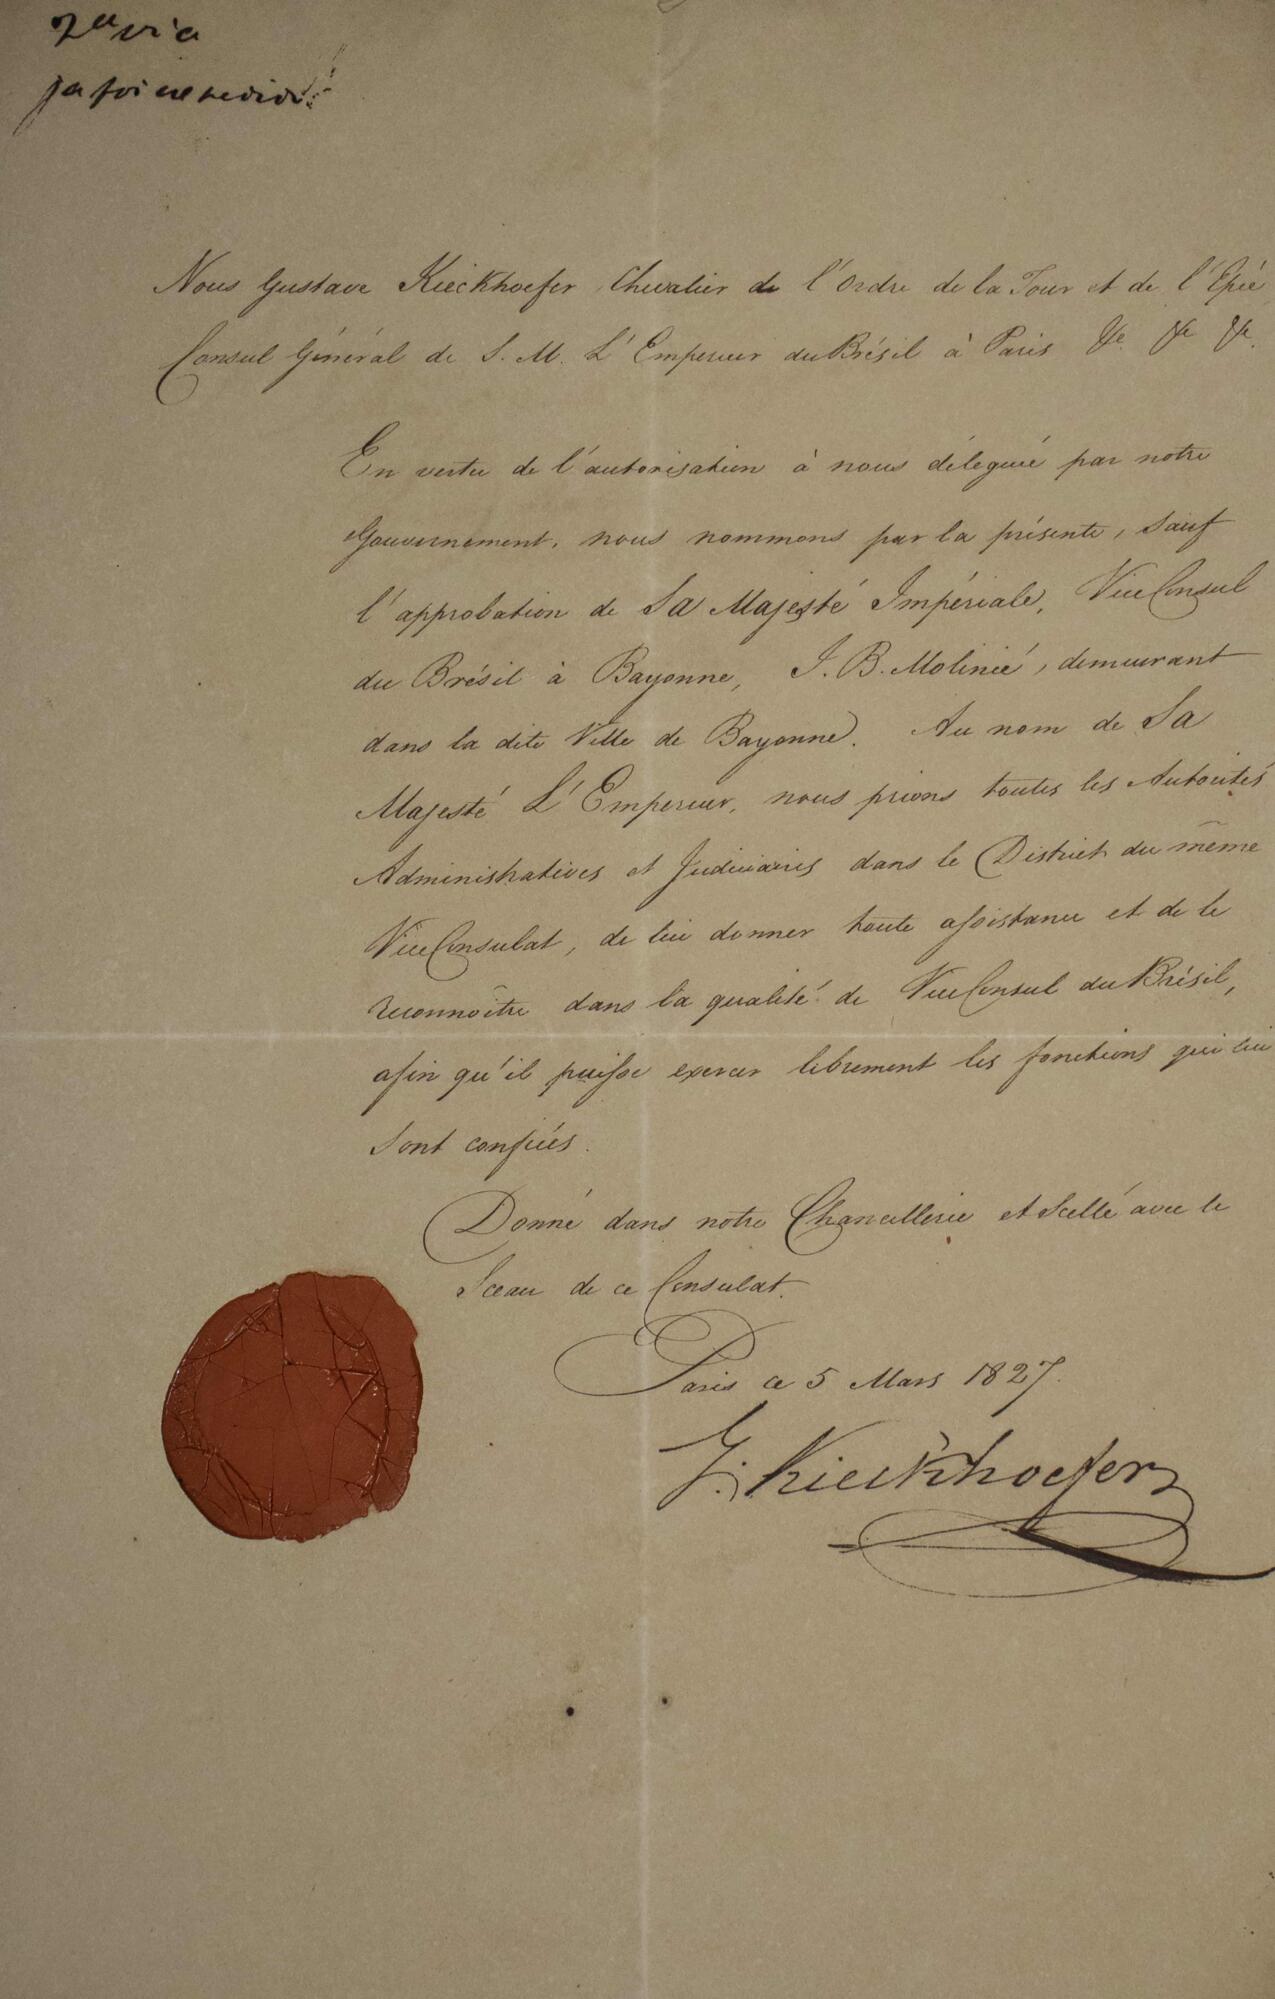 2ª via
ja foi expedida
Nous Gustave Kieckhoefer Chevalier de l'Ordre de la Tour et de l'Epée
Consul Général de S. M. L'Empereur du Brésil à Paris &c &c &c.
En vertu de l'autorisation à nous déléguée par notre
Gouvernement, nous nommons par la présente, sauf
l'approbation de Sa Majesté Impériale, Vice Consul
du Brésil à Bayonne, J. B. Molinié, demeurant
dans la dite Ville de Bayonne. Au nom de Sa
Majesté L'Empereur, nous prions toutes les Autorités
Administratives et Judiciaires dans le District du même
Vice Consulat, de lui donner toute assistance et de le
reconnoître dans la qualité de Vice Consul du Brésil,
afin qu'il puisse exercer librement les fonctions qui lui
sont confiées.
Donné dans notre Chancellerie et Scellé avec le
Sceau de ce Consulat.
Paris ce 5 Mars 1827.
G. Kieckhoefer